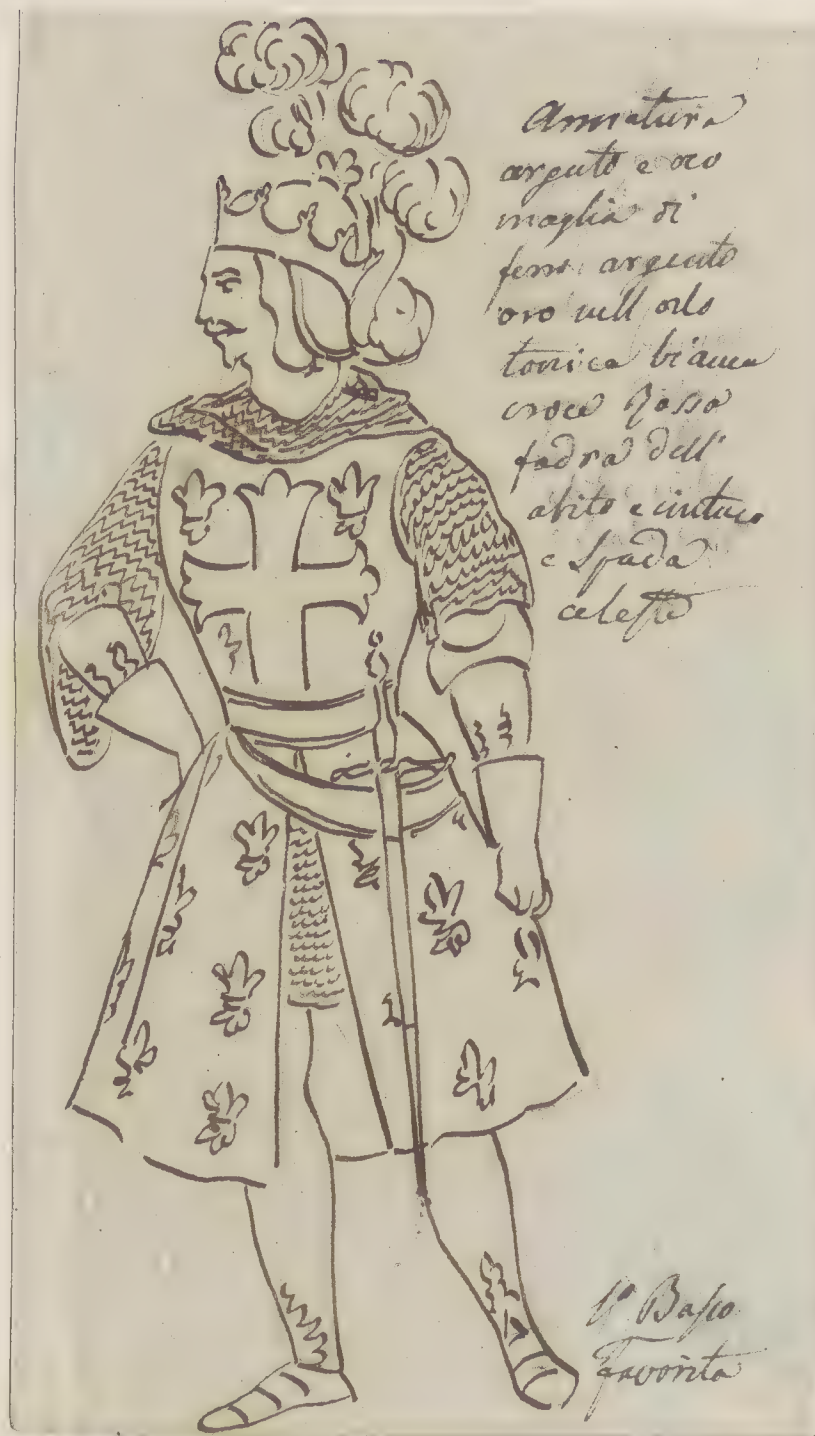 Armatura
argento e oro
maglia di
ferro argento
oro nell orlo
tonica bianca
croce Rossa
fodra dell'
abito e cintura
e Spada
celeste
1º Basso
Favorita